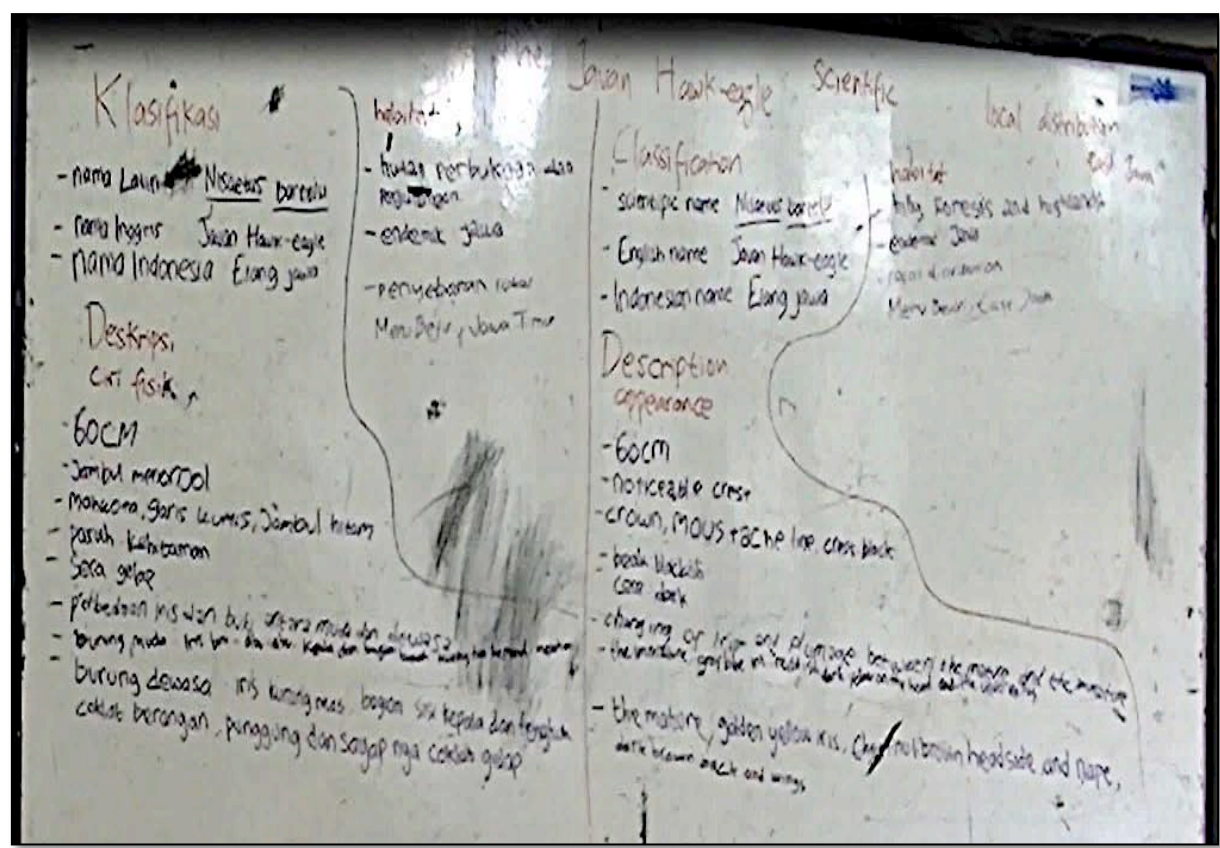 the Javan Hawk-eagle
Scientific
Klasifikasi
- nama Latin Nisaetus bartelsi
- nama Inggris Javan Hawk-eagle
- nama Indonesia Elang jawa
Deskripsi
ciri fisik
- 60CM
- Jambul menonjol
- Mahkota, garis kumis, Jambul hitam
- paruh kehitaman
- Sera gelap
- perbedaan iris dan bulu antara muda dan dewasa
- burung muda iris
- burung dewasa iris kuning mas, bagian sisi kepala dan tengkuk
coklat berangan, punggung dan sayap nya coklat gelap
habitat
- hutan perbukingga dan
- endemik jawa
- penyebaran lokal
Meru Betiri, Jawa Timur
Classification
- English name Javan Hawk-eagle
- Indonesian name Elang jawa
Description
appearance
- 60cm
- noticeable crest
- crown, moustache line, crest black
- beak blackish
cere dark
- changing of iris and plumage between the mature and the immature
- the immature
- the mature, golden yellow iris, brown headside and nape,
dark brown back and wings
local distribution
East Java
habitat
- hilly forests and highlands
- endemic Java
- local distribution
Meru Betiri, East Java